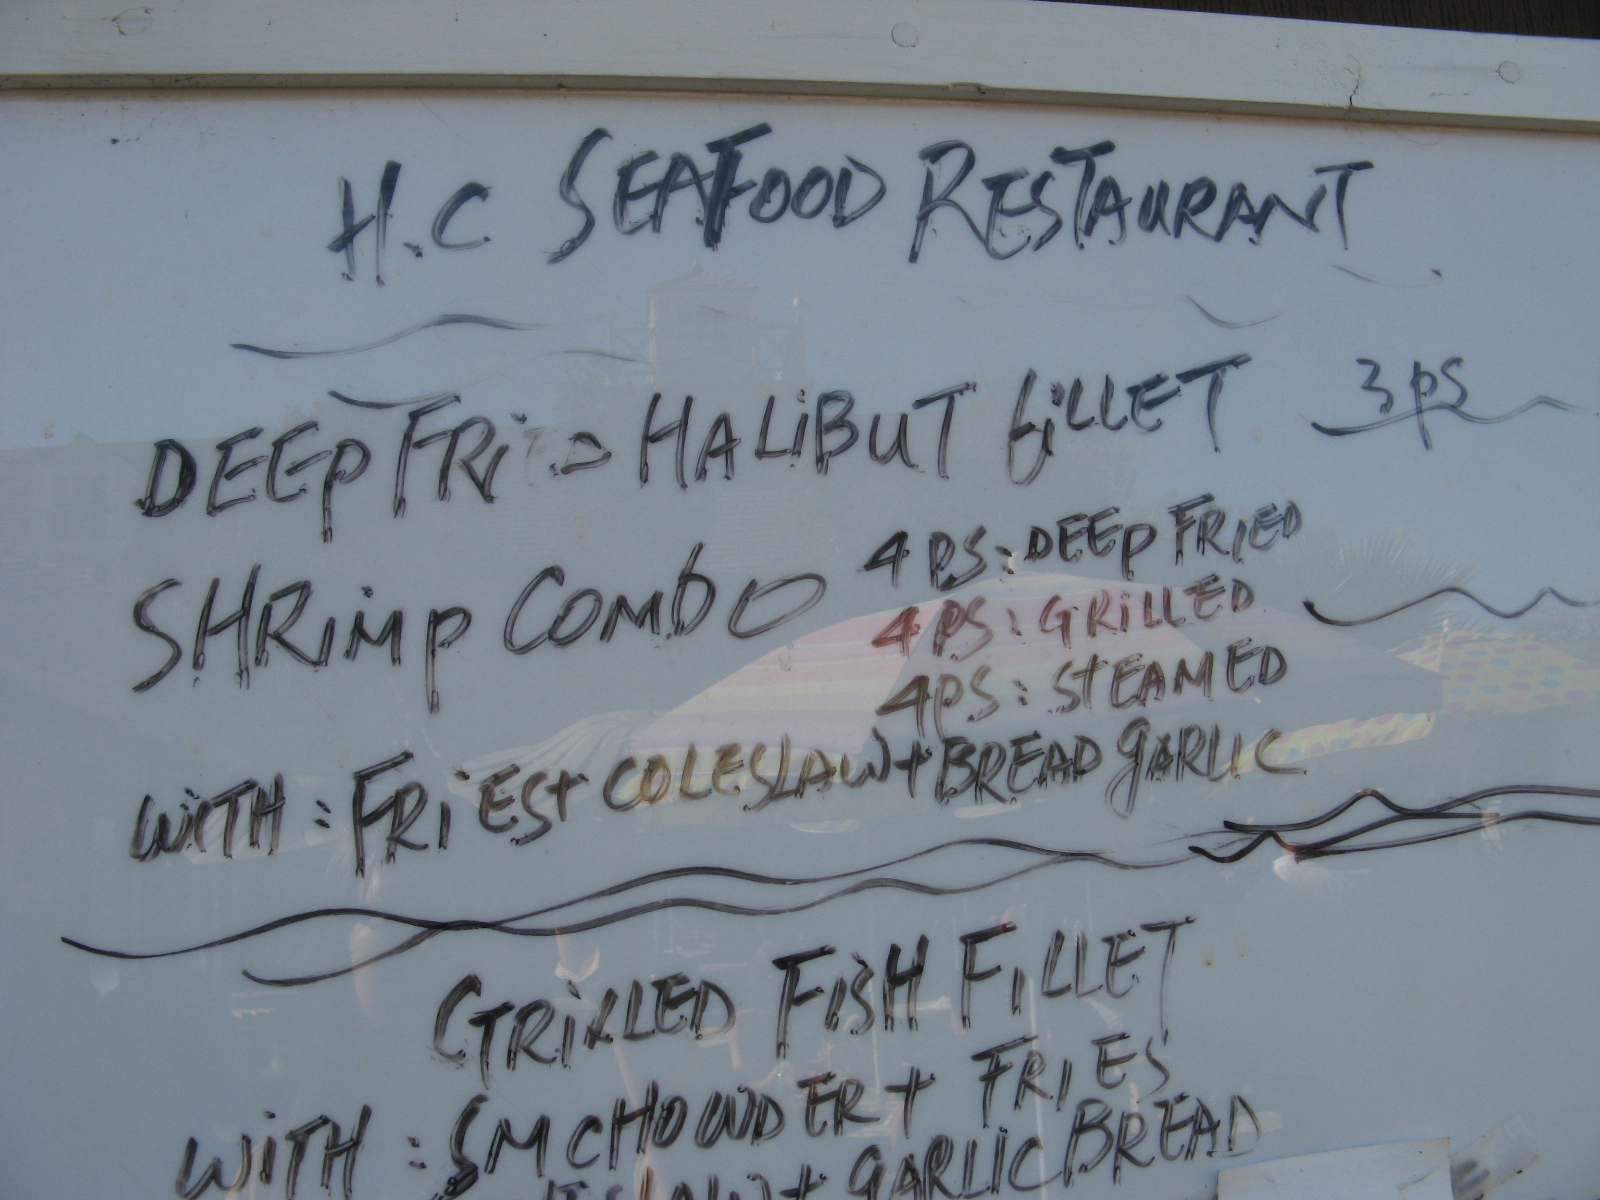 H.C SEAFOOD RESTAURANT
DEEP FRi D HALiBUT fiLLET 3 ps
SHRimp COMbO 4 PS: DEEp FRiED
4 PS: GRiLLED
4 PS: StEAMED
WiTH: FRiES+ COLESLAW+ BREAD gARLiC
GRiLLED FiSH FiLLET
WiTH: SM CHOWDER+ FRIES
+ GARLiC BREAD